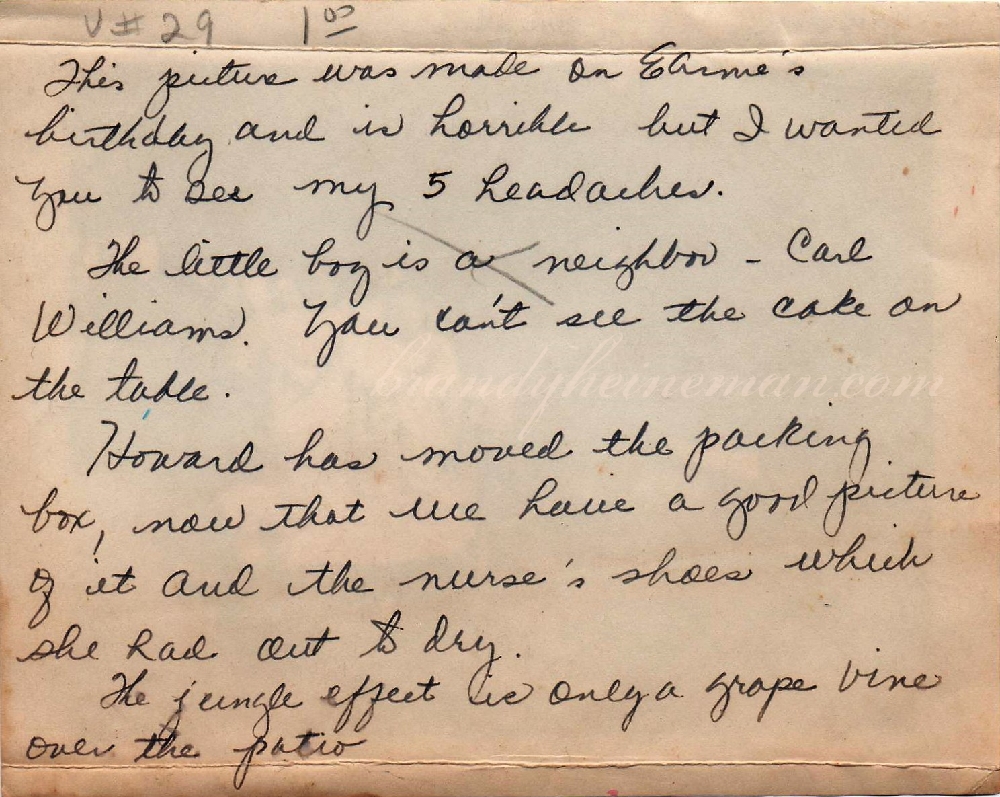 V # 29 1 00
This picture was made on
birthday and is horrible but I wanted
you to see my 5 headaches.
The little boy is a neighbor - Carl
Williams. You can't see the cake on
the table.
brandyheineman.com
Howard has moved the packing
box, now that we have a good picture
of it and the nurse's shoes which
she had out to dry.
The jungle effect is only a grape vine
over the patio